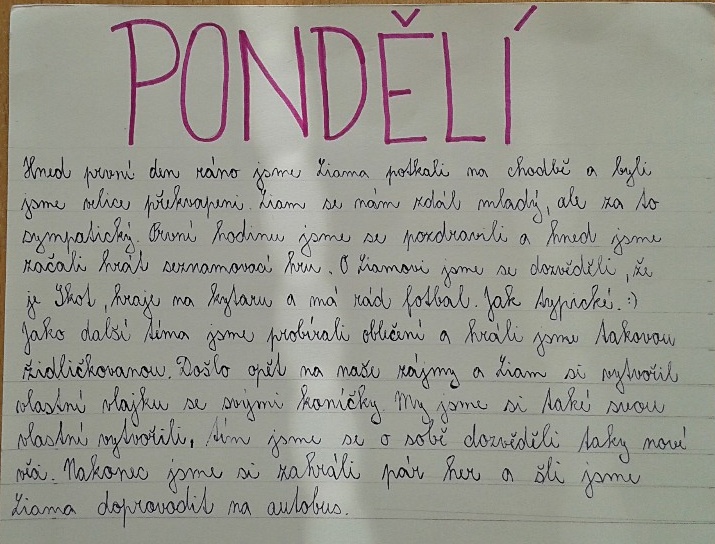 PONDĚLÍ
Hned první den ráno jsme Liama potkali na chodbě a byli
jsme velice překvapeni. Liam se nám zdál mladý, ale za to
sympatický. První hodinu jsme se pozdravili a hned jsme
začali hrát seznamovací hru. O Liamovi jsme se dozvěděli, že
je Skot, hraje na kytaru a má rád fotbal. Jak typické. :)
Jako další téma jsme probírali oblečení a hráli jsme takovou
židličkovanou. Došlo opět na naše zájmy a Liam si vytvořil
vlastní vlajku se svými koníčky. My jsme si také svou
vlastní vytvořili, tím jsme se o sobě dozvěděli taky nové
věci. Nakonec jsme si zahráli pár her a šli jsme
Liama doprovodit na autobus.